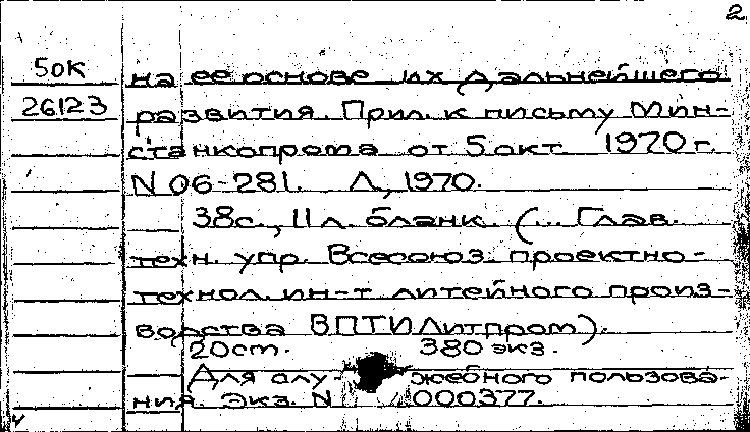 2
50К
на ее основе их дальнейшего
26123
развития. Прил. к письму Мин-
станкопрома от 5 окт. 1970 г.
N 06-281. Л., 1970.
38с., 11 л. бланк. (... Глав.
техн. упр. Всесоюз. проектно-
технол. ин-т литейного произ-
водства ВПТИЛитпром).
20см. 380 экз.
Для слу- жебного пользова-
ния Экз. N 000377.